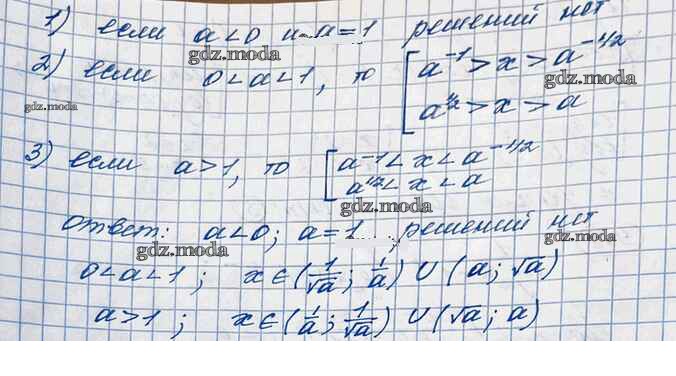 1) если a<0 и a=1 решений нет
gdz.moda
2) если 0<a<1, то [ a^{-1}>x>a^{-1/2}
gdz.moda
a^{1/2}>x>a
gdz.moda
3) если a>1, то [ a^{-1}<x<a^{-1/2}
a^{1/2}<x<a
gdz.moda
ответ: a<0; a=1; решений нет
gdz.moda
gdz.moda
0<a<1; x∈(1/√a; 1/a) ∪ (a; √a)
a>1; x∈(1/a; 1/√a) ∪ (√a; a)
gdz.moda
gdz.moda